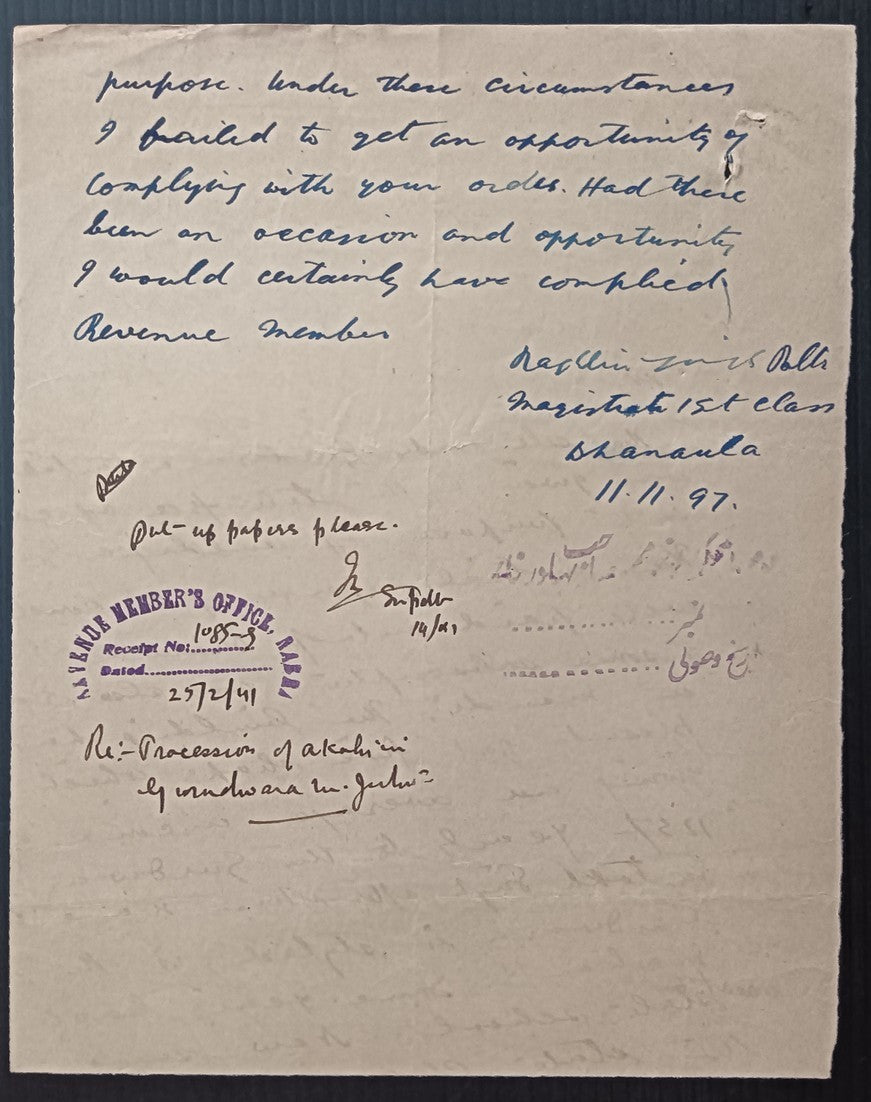 purpose. Under these circumstances
I failed to get an opportunity of
complying with your order. Had there
been an occasion and opportunity
I would certainly have complied
Revenue Member
Magistrate 1st Class
Dhanaula
11.11.97.
Put-up papers please.
Supdtt
REVENUE MEMBER'S OFFICE,
Receipt No: 1085-g
Dated
25/2/41
Re:- Procession of akalis in
Gurudwara
نمبر
تاریخ وصولی